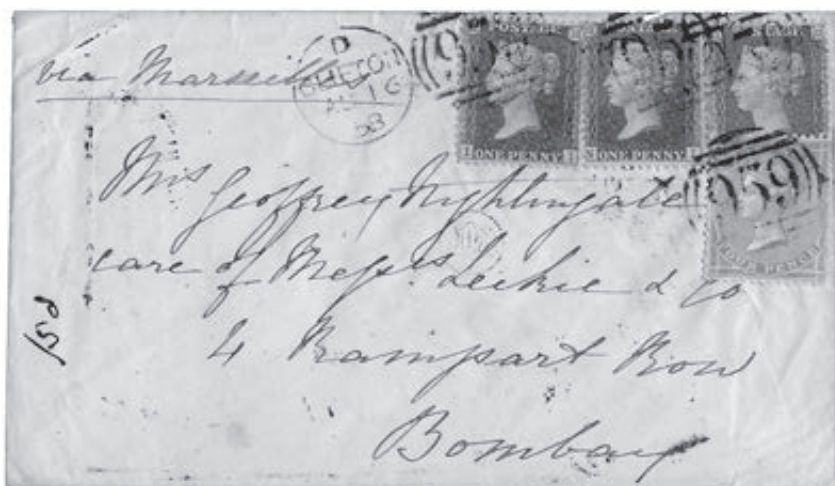 via Marseilles
D
AU 16
58
POSTAGE
I ONE PENNY I
ONE PENNY
959
FOUR PENCE
Mrs Geoffrey Nightingale
care of Messrs Leckie & Co
4 Rampart Row
Bombay